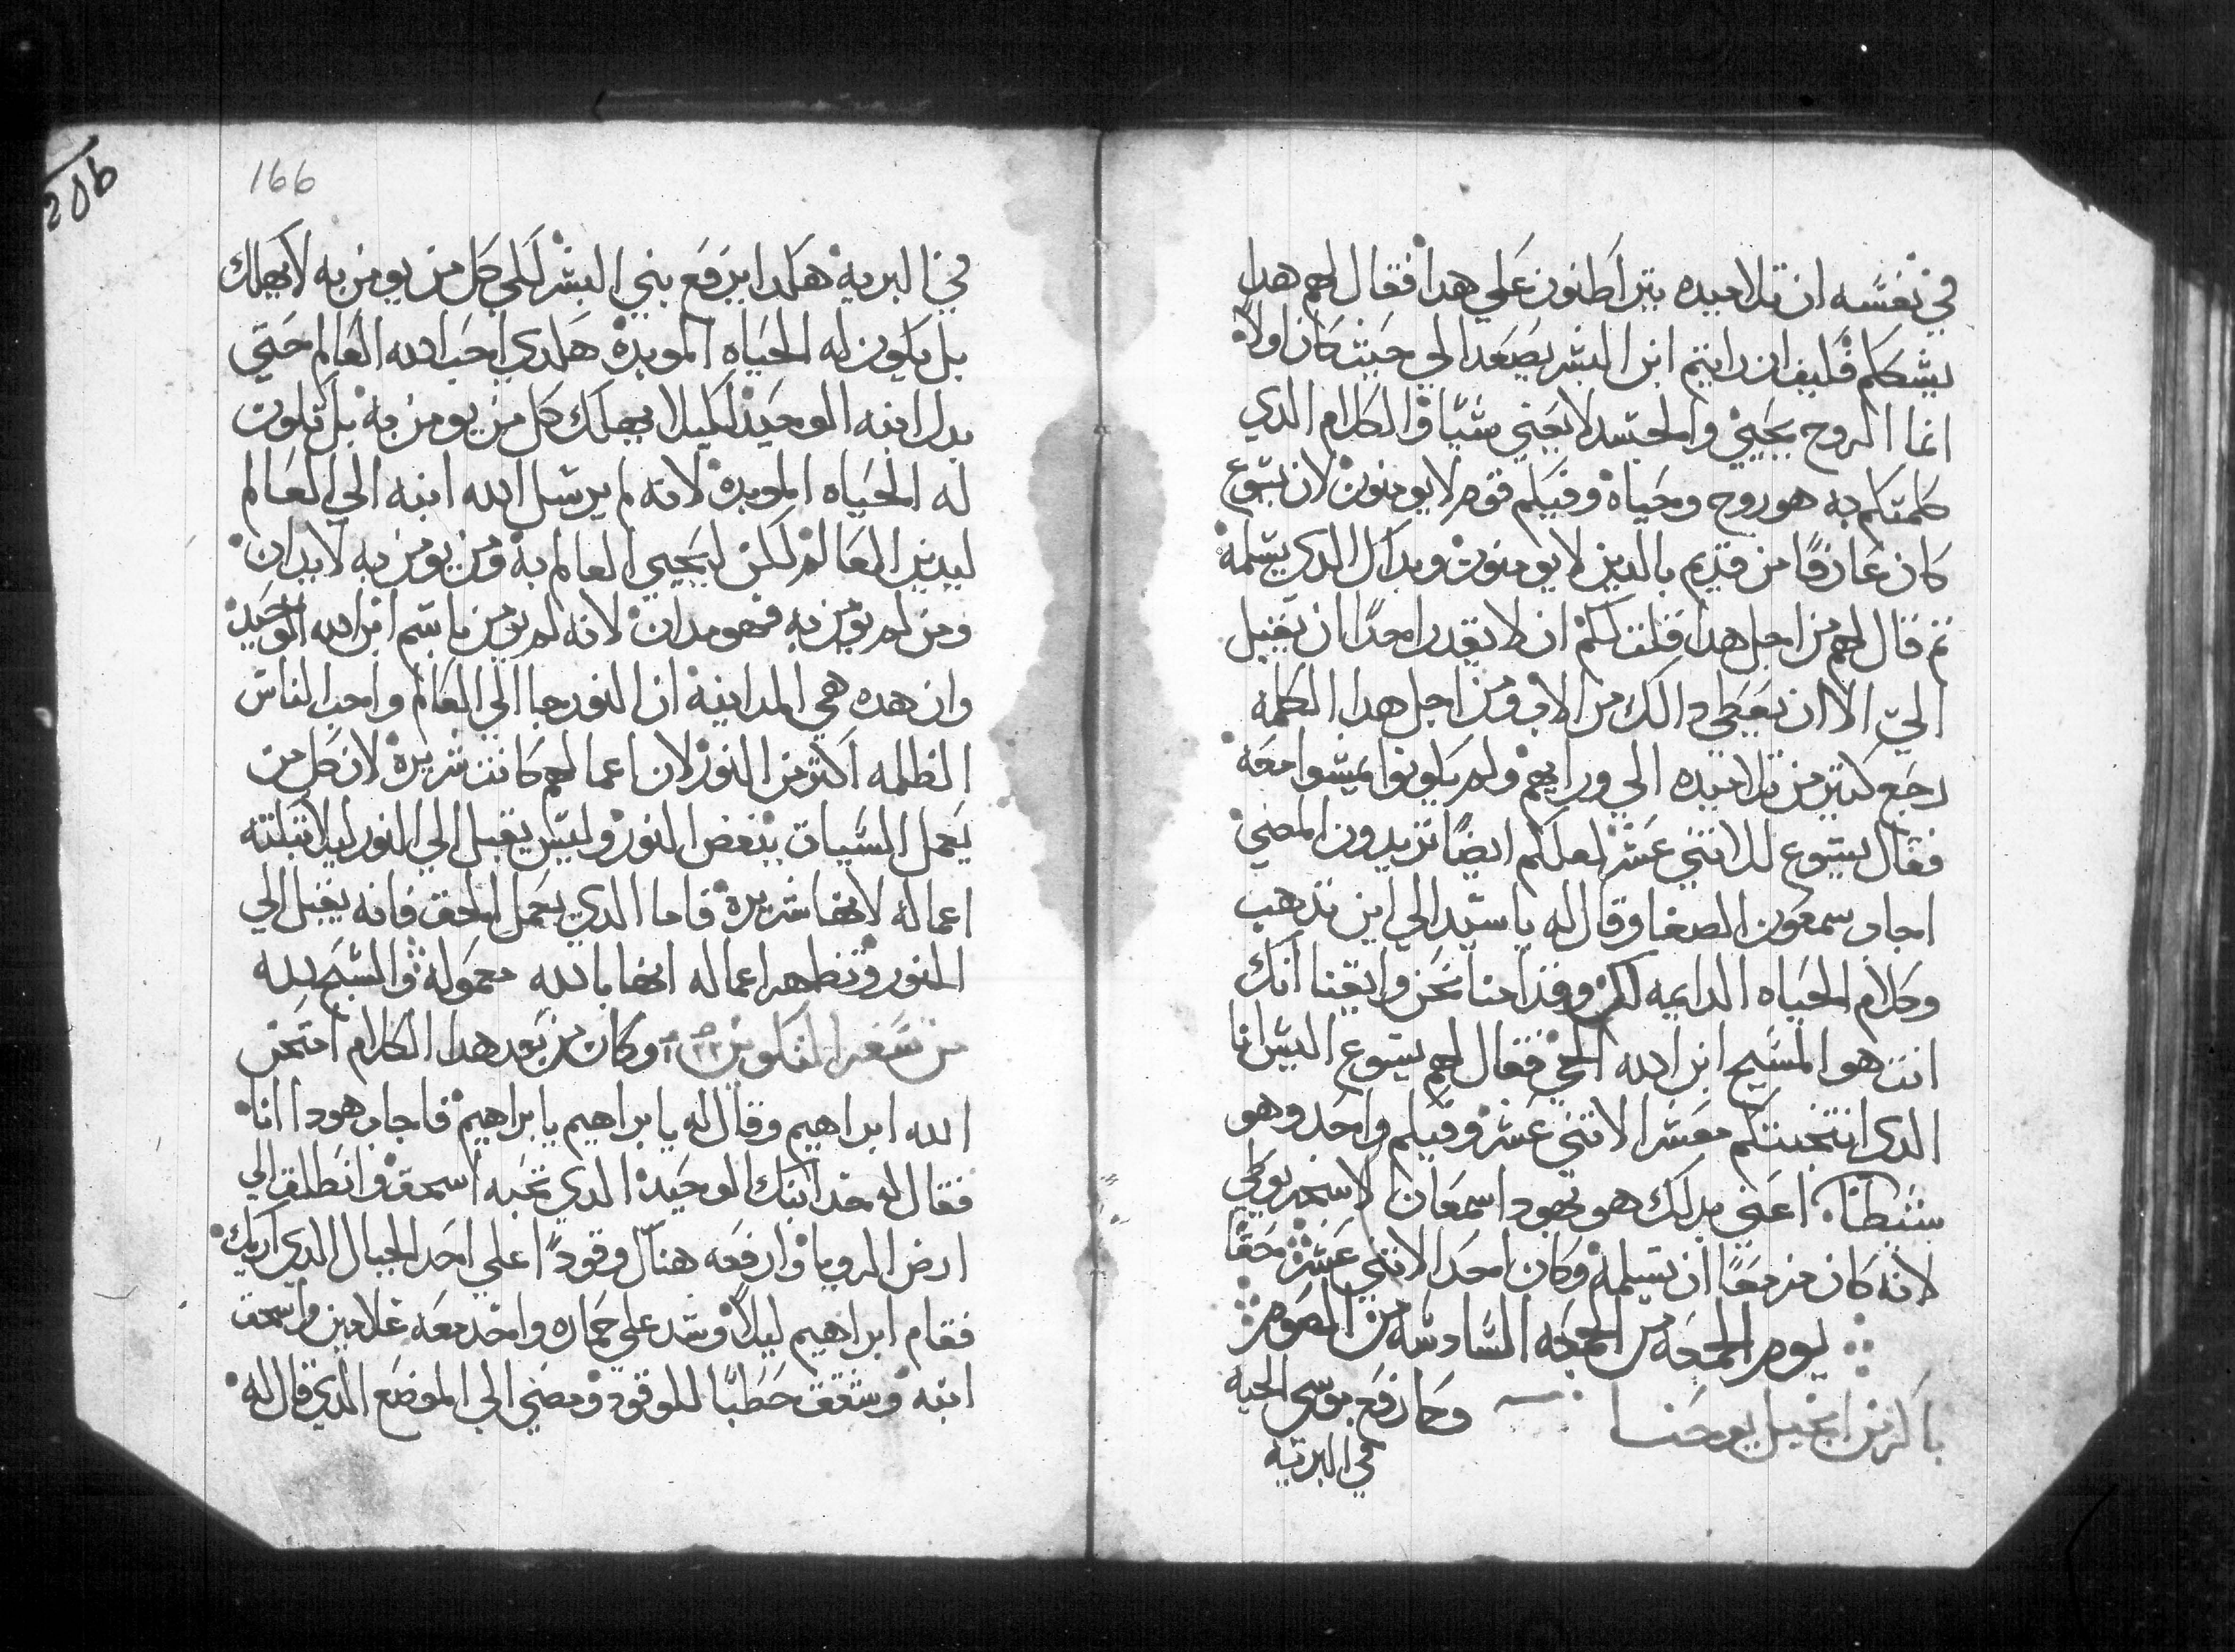 في نفسه ان تلاميده يتراطنون علي هدا فقال لهم هدا
يشككم فكيف ان رايتم ابن البشر يصعد الي حيث كان اولاً
انما الروح يحيي والجسد لا يغني شياً والكلام الدي
كلمتكم به هو روح وحياة وفيكم قوم لا يومنون لان يسوع
كان عارفاً من قديم بالدين لا يومنون وبداك الدي يسلمه
تم قال لهم من اجل هدا قلت لكم ان لا يقدر احداً ان يقبل
الي الا ان يعطي دالك من الاب ومن اجل هدا الكلمه
رجع كتير من تلاميده الي ورايهم ولم يكونوا يمشوا معه
فقال يسوع للاتني عشر لعلكم ايضاً تريدون المضي
اجاب سمعون الصفا وقال له يا سيد الي اين ندهب
وكلام الحياه الدايمه لك وقد امنا نحن وايقنا انك
انت هو المسيح ابن الله الحي فقال لهم يسوع اليس انا
الدي انتخبتكم معشر الاتني عشر وفيكم واحد وهو
شيطان اعني بدلك هو يهودا سمعان الاسخريوطي
لانه كان مزمعاً ان يسلمه وكان احد الاتني عشر حقا
يوم الجمعه من الجمعه السادسه من الصوم
باكر من انجيل يوحنا وكما رفع موسي الحيه
في البريه
206
166
في البرية هكدا يرفع بني البشر لكي كل من يومن به لا يهلك
بل يكون له الحياه الموبدة هكدي احب الله العالم حتي
بدل ابنه الوحيد لكيلا يهلك كل من يومن به بل تكون
له الحياه الموبدة لانه لم يرسل الله ابنه الي العالم
ليدين العالم لكن ليحيي العالم به ومن يومن به لا يدان
ومن لم يومن به فهو مدان لانه لم يومن باسم ابن الله الوحيد
وان هده هي المداينة ان النور جا الي العالم واحب الناس
الظلمه اكتر من النور لان اعمالهم كانت شريرة لان كل من
يعمل السيات يبغض النور وليس يقبل الي النور ليلا تبكته
اعماله لانها شريرة فاما الدي يعمل الحق فانه يقبل الي
النور وتظهر اعماله انها بالله معموله والسبح لله
من سفر التكوين وكان من بعد هدا الكلام امتحن
الله ابراهيم وقال له يابراهيم يابراهيم فاجاب هودا انا
فقال له خد ابنك الوحيد الدي تحبه اسحق وانطلق الي
ارض الرويا وارفعه هناك وقوداً علي احد الجبال الدي اريك
فقام ابراهيم ليلاً وشد علي حماره واخد معه غلامين واسحق
ابنه وشقق حطباً للوقود ومضي الي الموضع الدي قال له